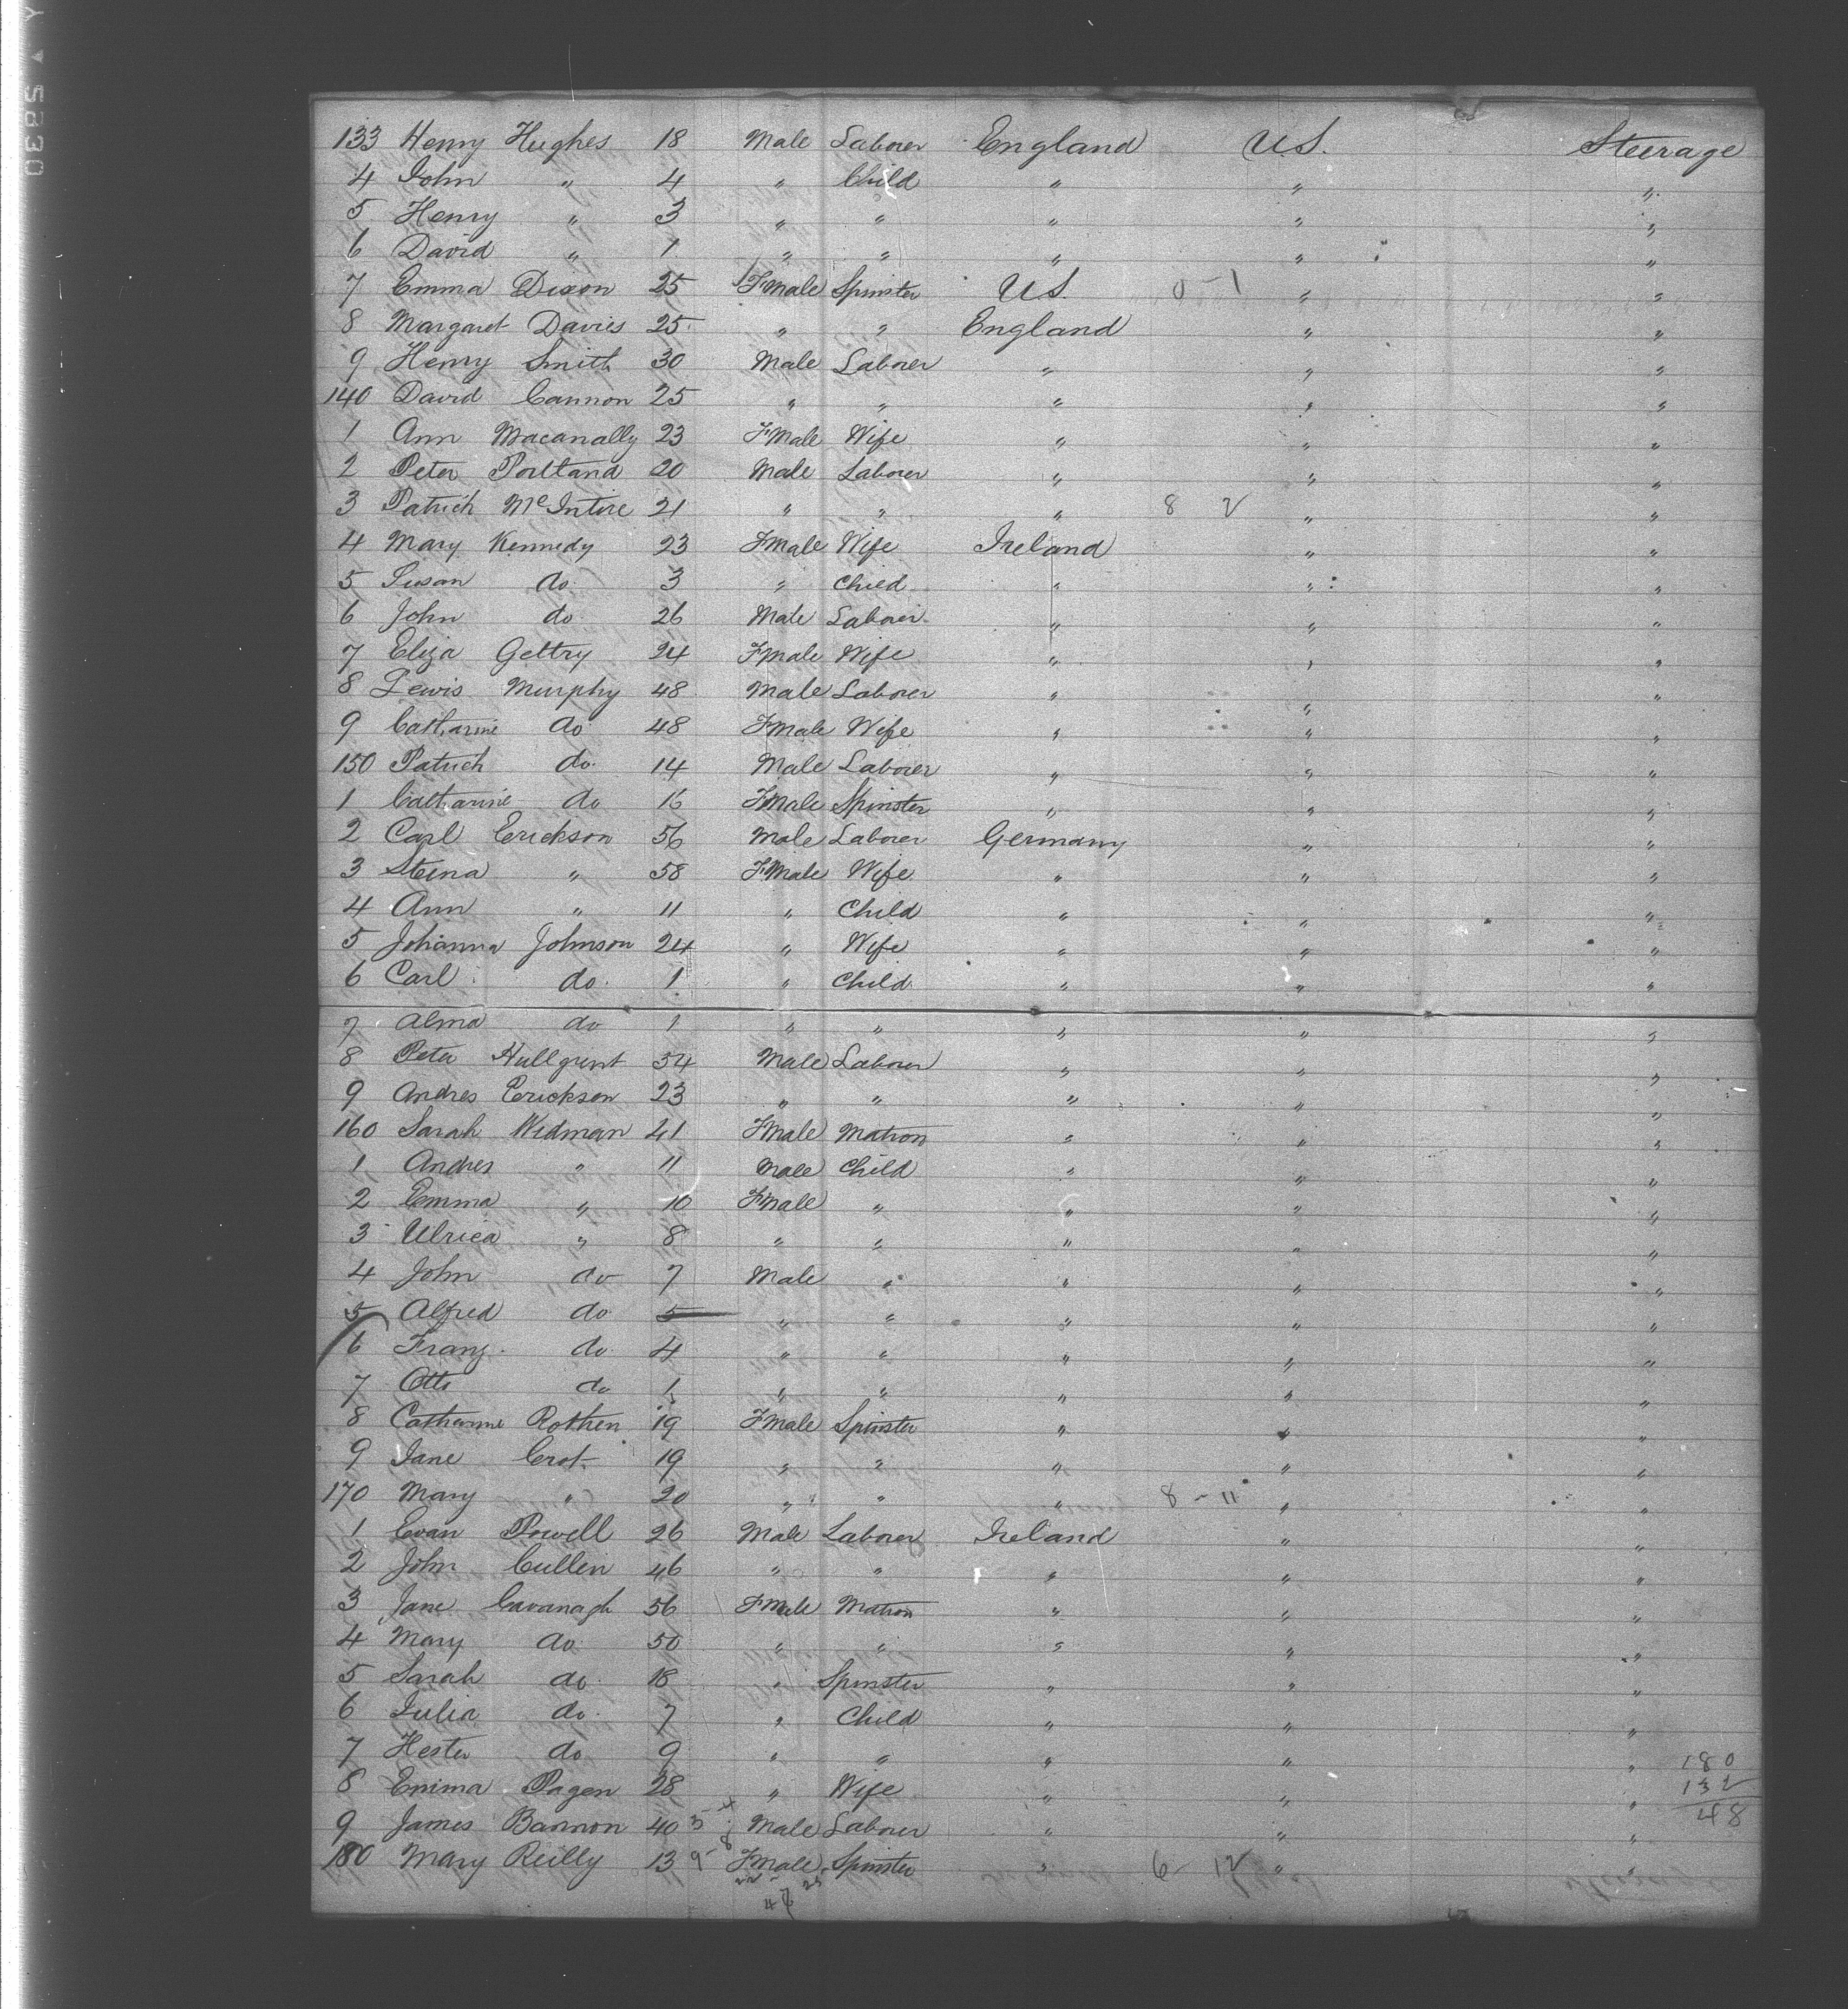 133 Henry Hughes 18 Male Laborer England U.S. Steerage
4 John " 4 " Child " " "
5 Henry " 3 " " " " "
6 David " 1 " " " " "
7 Emma Dixon 25 Fmale Spinster U.S. 0-1 " "
8 Margaret Davies 25 " " England " "
9 Henry Smith 30 Male Laborer " " "
140 David Cannon 25 " " " " "
1 Ann Macanally 23 Fmale Wife " " "
2 Peter Portland 20 Male Laborer " " "
3 Patrick McIntire 21 " " " 8 2 " "
4 Mary Kennedy 23 Fmale Wife Ireland " "
5 Susan do 3 " Child " " "
6 John do 26 Male Laborer " " "
7 Eliza Gettry 24 Fmale Wife " " "
8 Lewis Murphy 48 Male Laborer " " "
9 Catharine do 48 Fmale Wife " " "
150 Patrick do 14 Male Laborer " " "
1 Catharine do 16 Fmale Spinster " " "
2 Carl Erickson 56 Male Laborer Germany " "
3 Steina " 58 Fmale Wife " " "
4 Ann " 11 " Child " " "
5 Johanna Johnson 24 " Wife " " "
6 Carl do 1 " Child " " "
7 Alma do 1 " " " " "
8 Peter 54 Male Laborer " " "
9 Andres Erickson 23 " " " " "
160 Sarah Widman 41 Fmale Matron " " "
1 Andres " 11 Male Child " " "
2 Emma " 10 Fmale " " " "
3 Ulrica " 8 " " " " "
4 John do 7 Male " " " "
5 Alfred do 5 " " " " "
6 Franz do 4 " " " " "
7 Otto do 1 " " " " "
8 Catharine Rothen 19 Fmale Spinster " " "
9 Jane Crot 19 " " " " "
170 Mary " 20 " " " 8-11 " "
1 Evan Powell 26 Male Laborer Ireland " "
2 John Cullen 46 " " " " "
3 Jane Cavanagh 56 Fmale Matron " " "
4 Mary do 50 " " " " "
5 Sarah do 18 " Spinster " " "
6 Julia do 7 " Child " " "
7 Hester do 9 " " " " " 180
8 Emma Pagen 28 " Wife " " " 132
9 James Bannon 40 Male Laborer " " " 48
180 Mary Reilly 13 Fmale Spinster " 6-12 " "